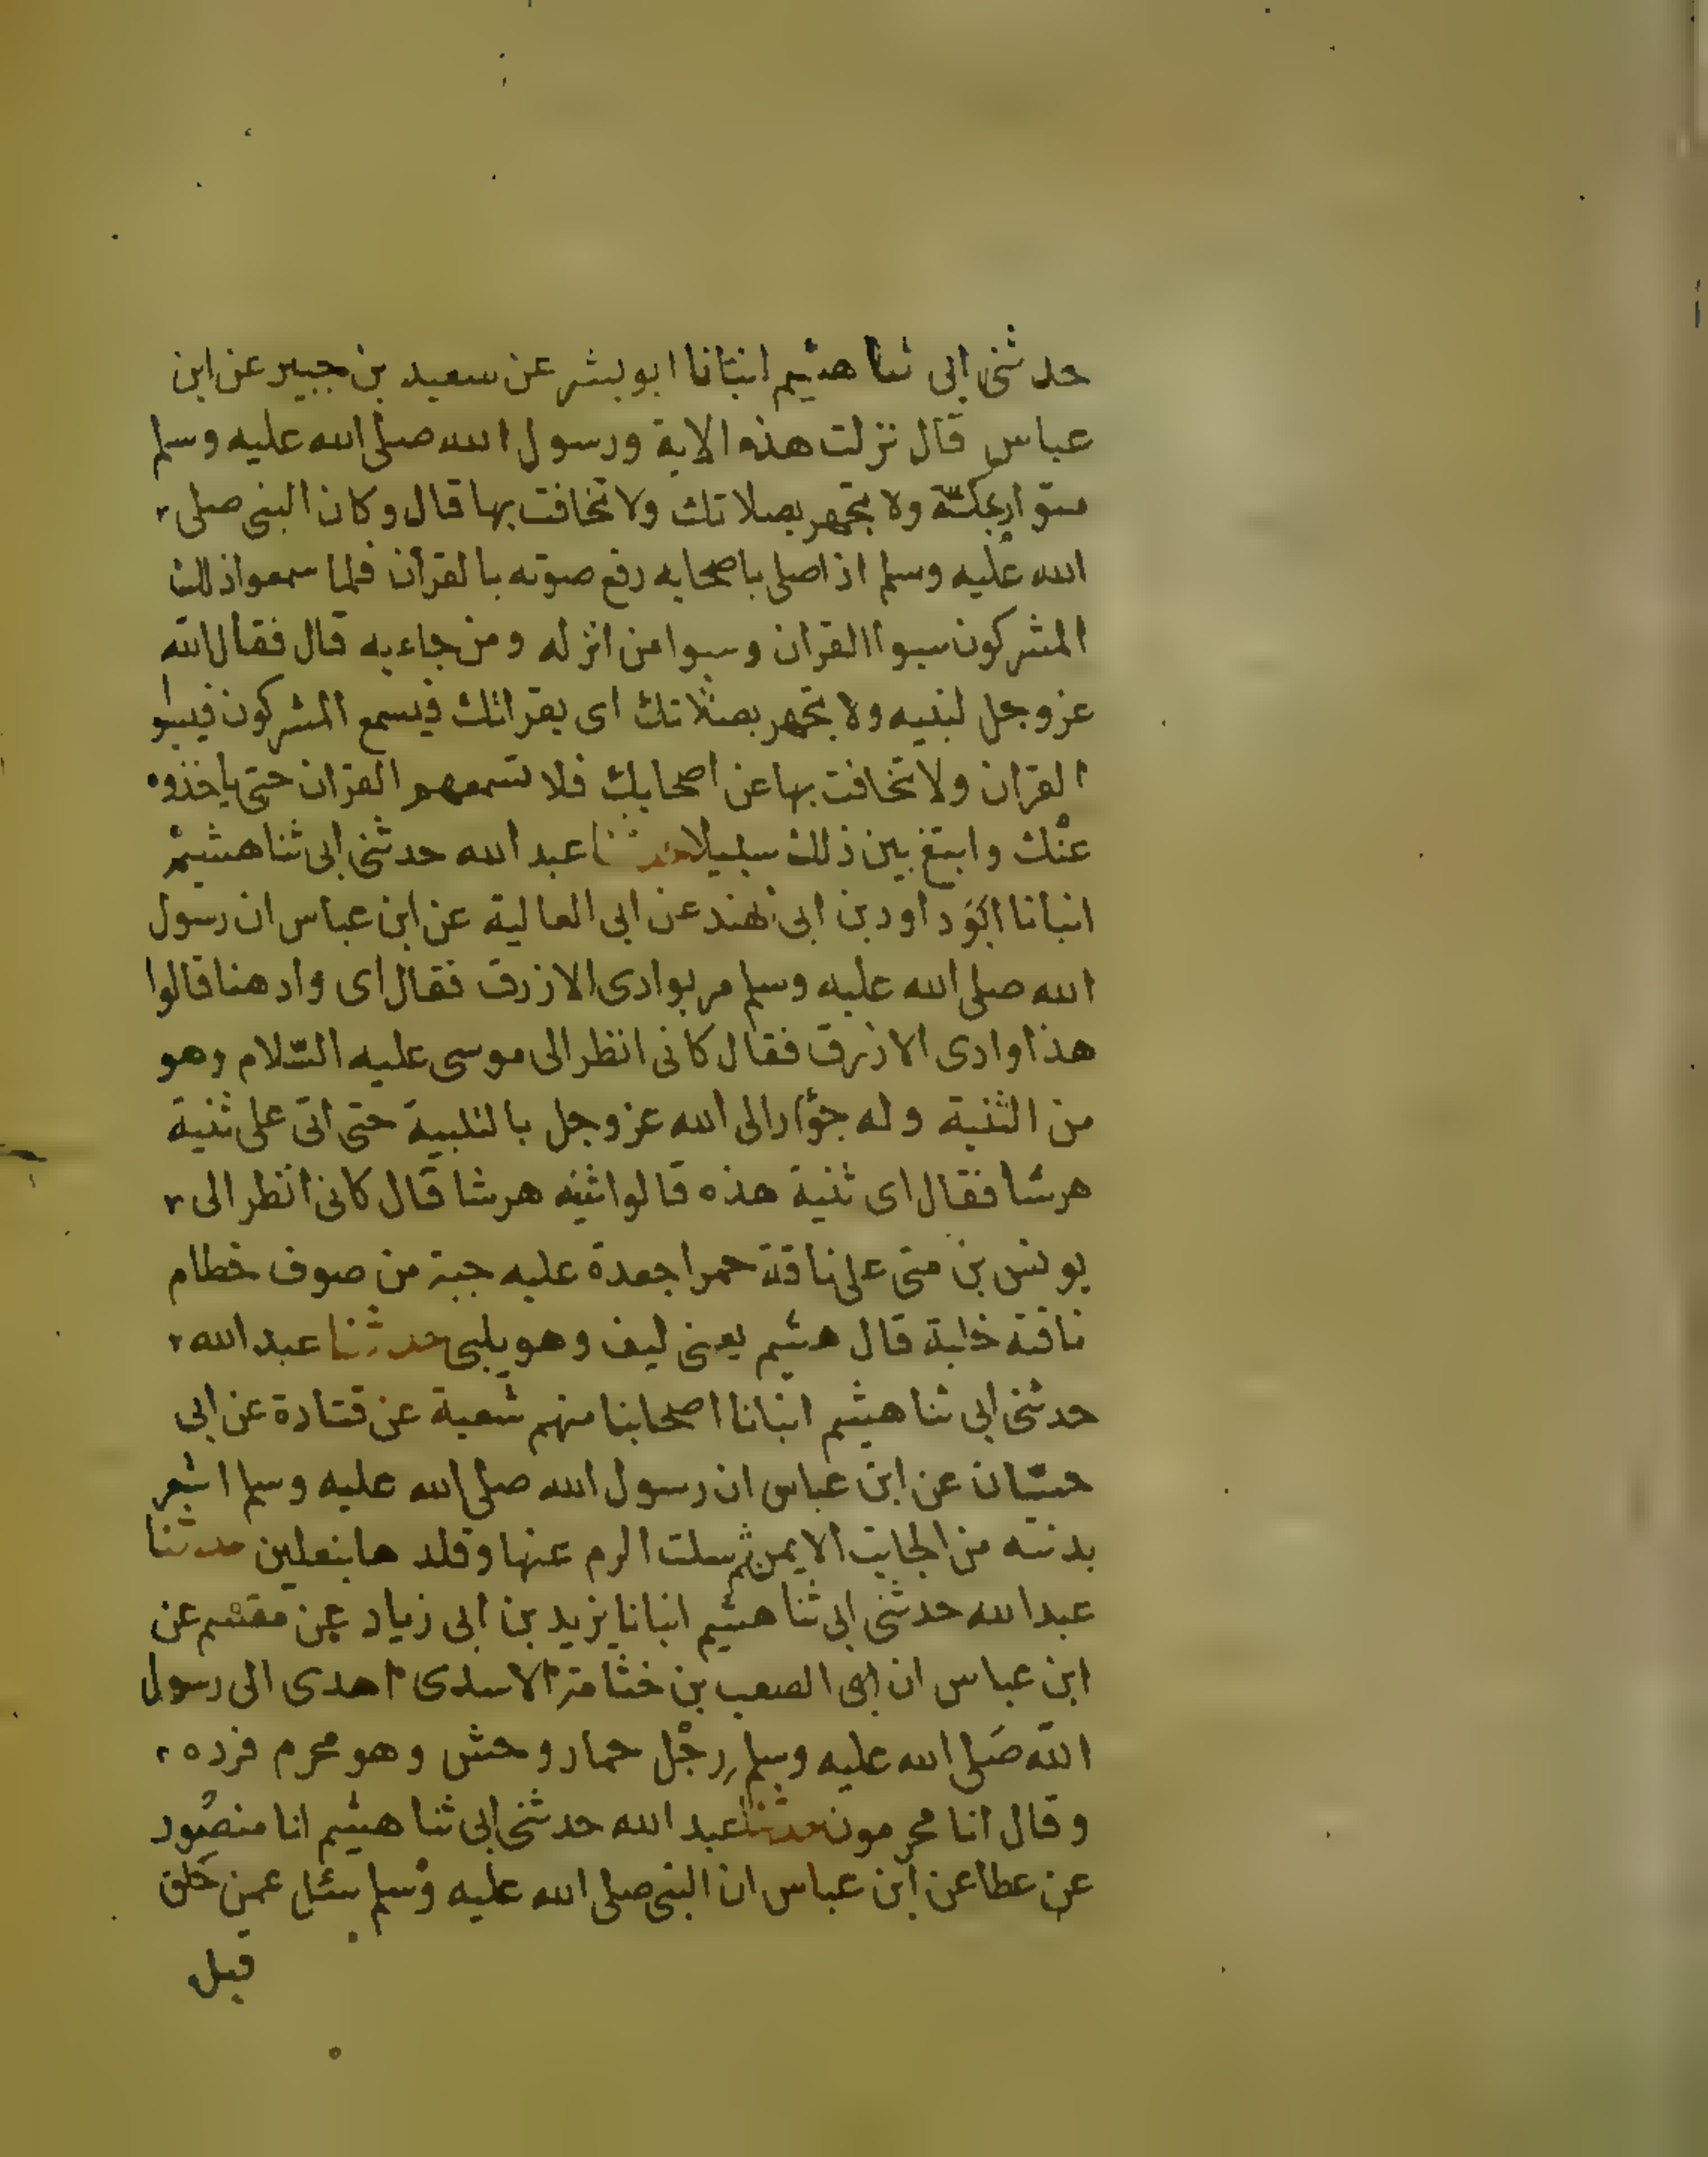 حدثنى ابى ثنا هشيم انبانا ابو بشر عن سعيد بن جبير عن ابن
عباس قال نزلت هذه الاية ورسول الله صلى الله عليه وسلم
متوار بمكة ولا تجهر بصلاتك ولا تخافت بها قال وكان النبى صلى
الله عليه وسلم اذا صلى باصحابه رفع صوته بالقرآن فلما سمعوا ذلك
المشركون سبوا القران وسبوا من انزله ومن جاء به قال فقال الله
عز وجل لنبيه ولا تجهر بصلاتك اى بقرائتك فيسمع المشركون فيسبوا
القران ولا تخافت بها عن اصحابك فلا تسمعهم القران حتى ياخذوه
عنك وابتغ بين ذلك سبيلا حدثنا عبد الله حدثنى ابى ثنا هشيم
انبانا ابو داود بن ابى هند عن ابى العالية عن ابن عباس ان رسول
الله صلى الله عليه وسلم مر بوادى الازرق فقال اى واد هذا قالوا
هذا وادى الازرق فقال كانى انظر الى موسى عليه السّلام وهو
من الثنية وله جؤار الى الله عز وجل بالتلبية حتى اتى على ثنية
هرشا فقال اى ثنية هذه قالوا ثنية هرشا قال كانى انظر الى
يونس بن متى على ناقة حمرا جعدة عليه جبة من صوف خطام
ناقته خلبة قال هشيم يعنى ليف وهو يلبى حدثنا عبد الله
حدثنى ابى ثنا هشيم انبانا اصحابنا منهم شعبة عن قتادة عن ابى
حسّان عن ابن عباس ان رسول الله صلى الله عليه وسلم اشعر
بدنته من الجانب الايمن ثم سلت الدم عنها وقلدها بنعلين حدثنا
عبد الله حدثنى ابى ثنا هشيم انبانا يزيد بن ابى زياد عن مقسم عن
ابن عباس ان الصعب بن خثامة الاسدى اهدى الى رسول
الله صلى الله عليه وسلم رجل حمار وحش وهو محرم فرده
وقال انا محرمون حدثنا عبد الله حدثنى ابى ثنا هشيم انا منصور
عن عطا عن ابن عباس ان النبى صلى الله عليه وسلم سئل عمن حلق
قبل